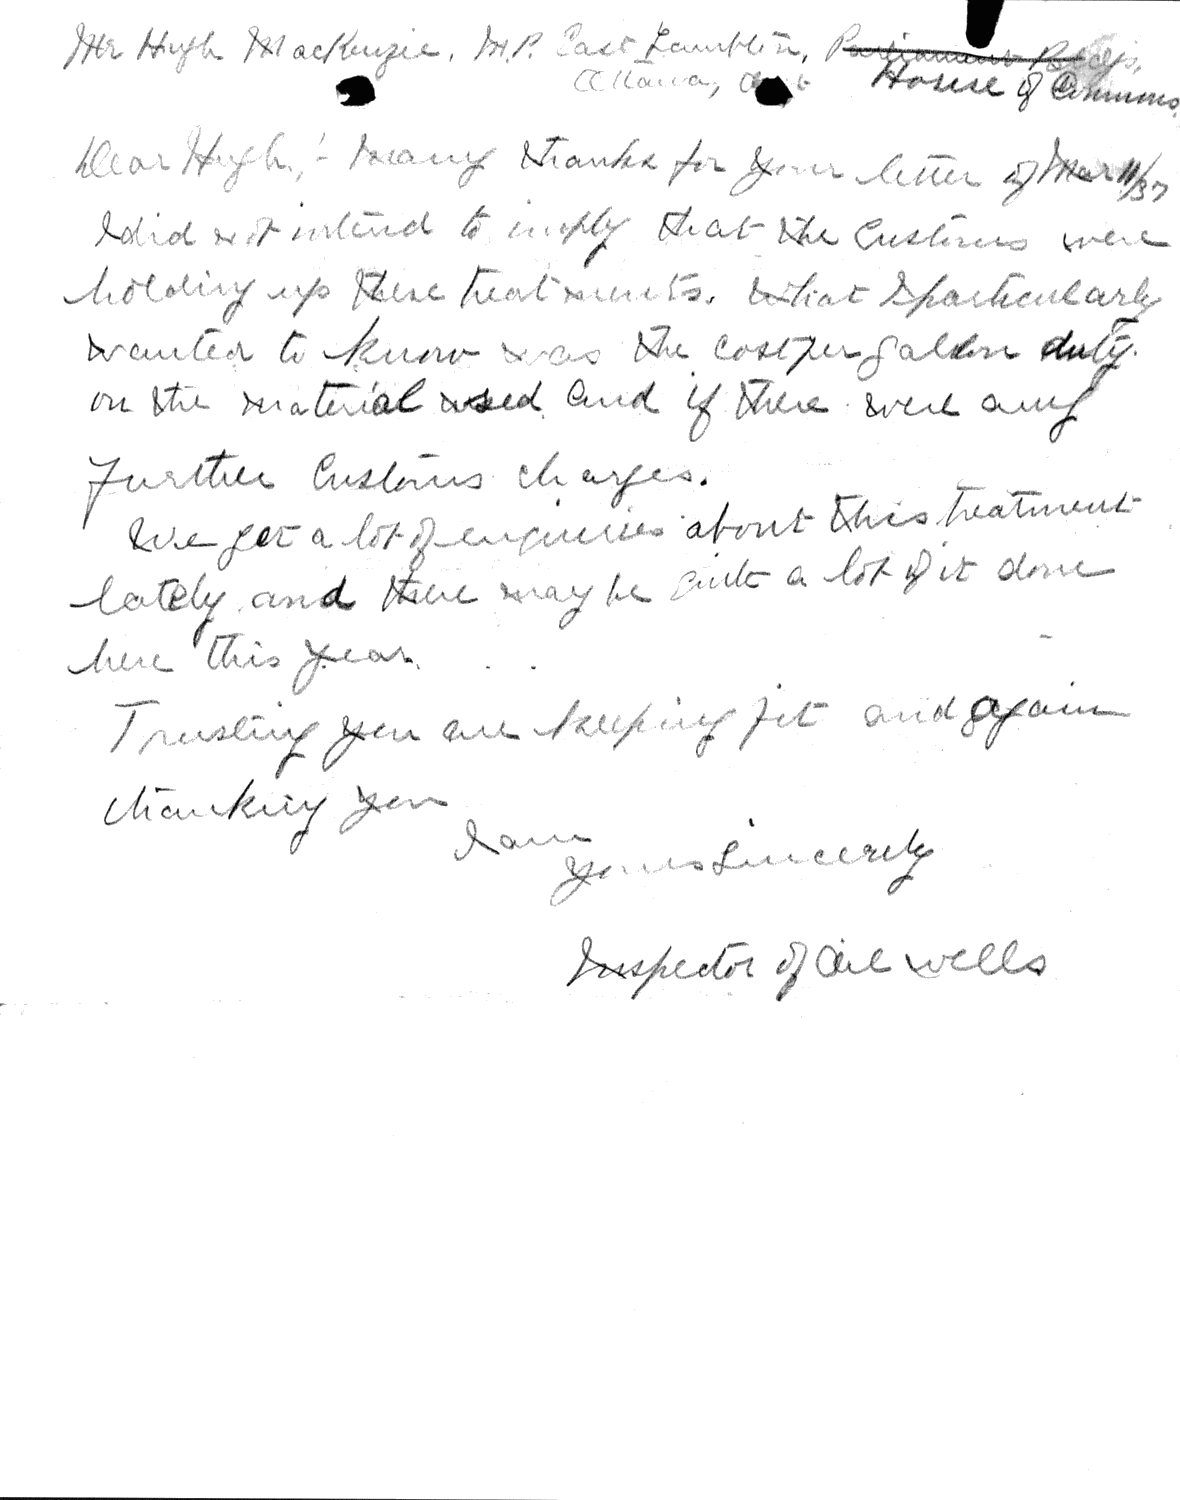 Mr Hugh MacKenzie, M.P. East Lambton, Parliament Bldgs,
Ottawa, Ont House of Commons,
Dear Hugh,:- Many thanks for your letter of Mar 11/37
I did not intend to imply that the Customs were
holding up these treatments. What I particularly
wanted to know was the cost per gallon duty
on the material used and if there were any
further Customs charges.
We get a lot of enquiries about this treatment
lately and there may be quite a lot of it done
here this year.
Trusting you are keeping fit and again
thanking you
I am
Yours Sincerely
Inspector of Oil wells